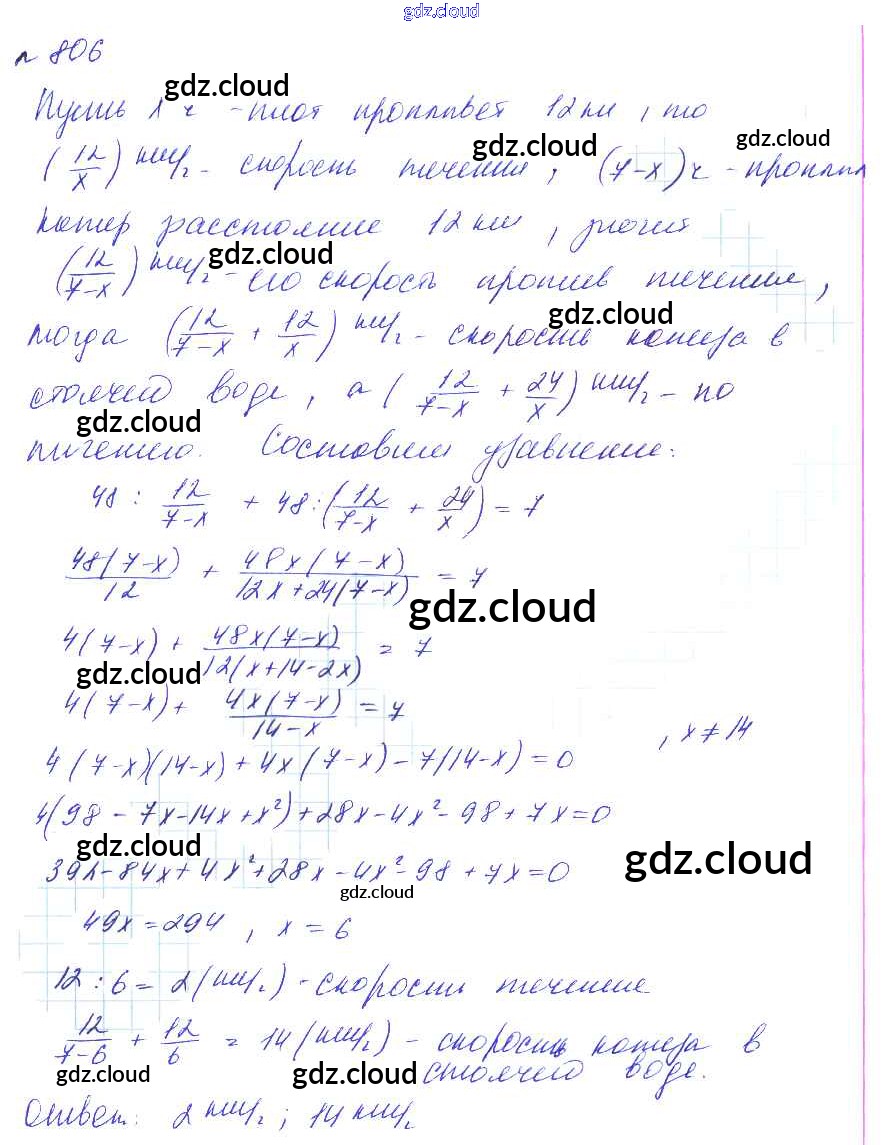 gdz.cloud
№ 806
gdz.cloud
Пусть x ч - плот проплывет 12 км, то
gdz.cloud gdz.cloud
(12/x) км/ч - скорость течения, (7-x) ч - проплыл
катер расстояние 12 км, значит
gdz.cloud
(12/(7-x)) км/ч - его скорость против течения,
gdz.cloud
тогда (12/(7-x) + 12/x) км/ч - скорость катера в
стоячей воде, а (12/(7-x) + 24/x) км/ч - по
gdz.cloud
течению. Составим уравнение:
48 : 12/(7-x) + 48 : (12/(7-x) + 24/x) = 7
48(7-x)/12 + 48x(7-x)/(12x+24(7-x)) = 7
gdz.cloud
4(7-x) + 48x(7-x)/(12(x+14-2x)) = 7
gdz.cloud
4(7-x) + 4x(7-x)/(14-x) = 7
, x ≠ 14
4(7-x)(14-x) + 4x(7-x) - 7(14-x) = 0
4(98 - 7x - 14x + x²) + 28x - 4x² - 98 + 7x = 0
gdz.cloud
392 - 84x + 4x² + 28x - 4x² - 98 + 7x = 0
gdz.cloud
49x = 294, x = 6
12 : 6 = 2 (км/ч) - скорость течения
12/(7-6) + 12/6 = 14 (км/ч) - скорость катера в
gdz.cloud gdz.cloud gdz.cloud
стоячей воде.
Ответ: 2 км/ч; 14 км/ч